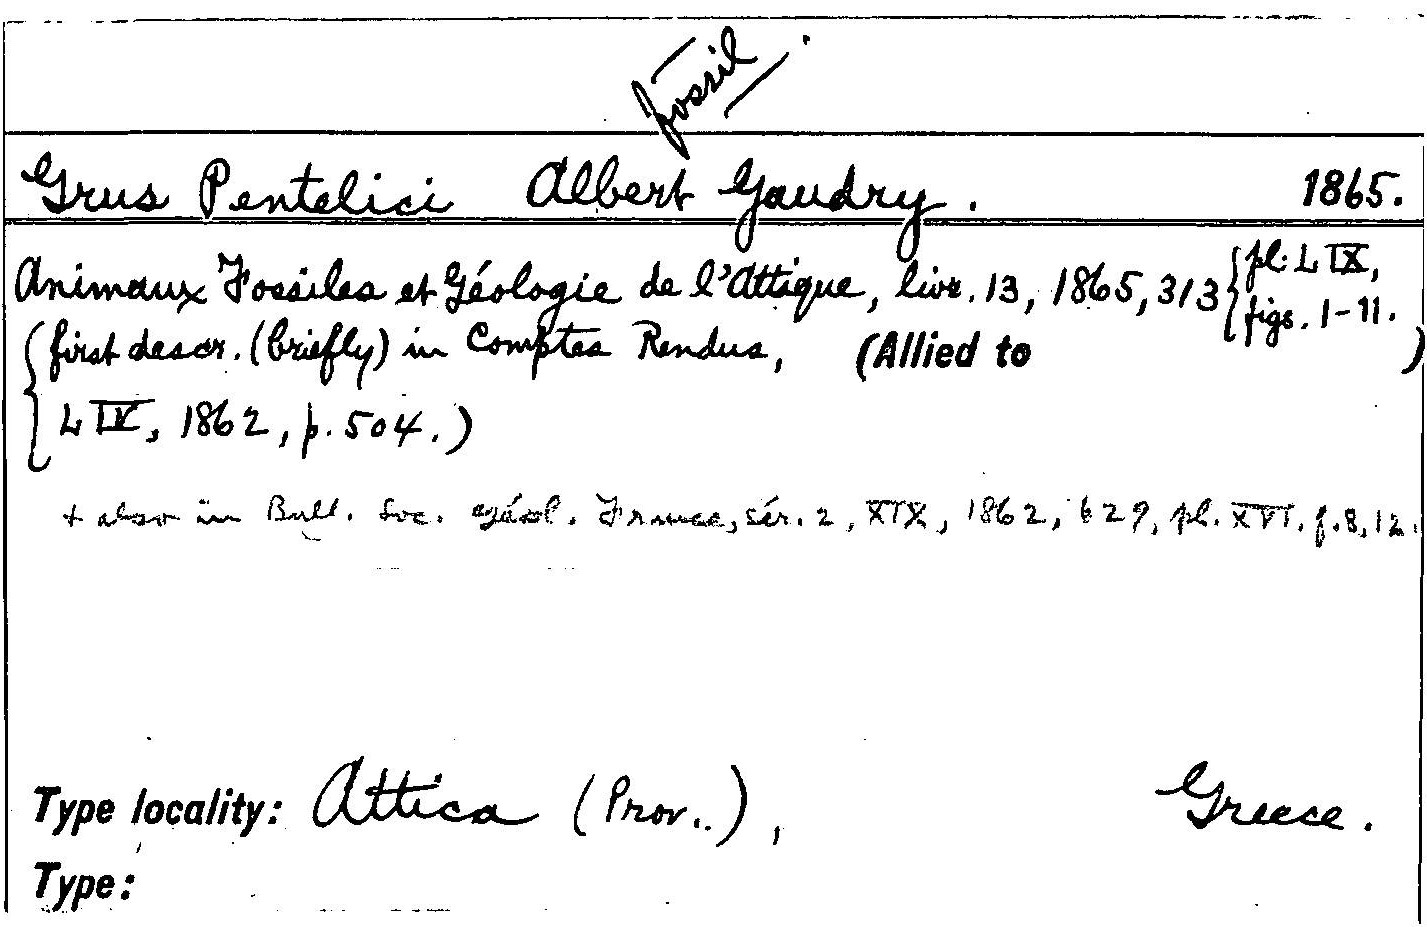 fossil.
Grus Pentelici Albert Gaudry. 1865.
Animaux Fossiles et Géologie de l'Attique, livr. 13, 1865, 313 { pl. LIX,
figs. 1-11.
{ first descr. (briefly) in Comptes Rendus, (Allied to )
LIV, 1862, p. 504.)
+ also in Bull. Soc. géol. France, sér. 2, XIX, 1862, 629, pl. XVI. f. 8, 12.
Type locality: Attica (Prov..), Greece.
Type: